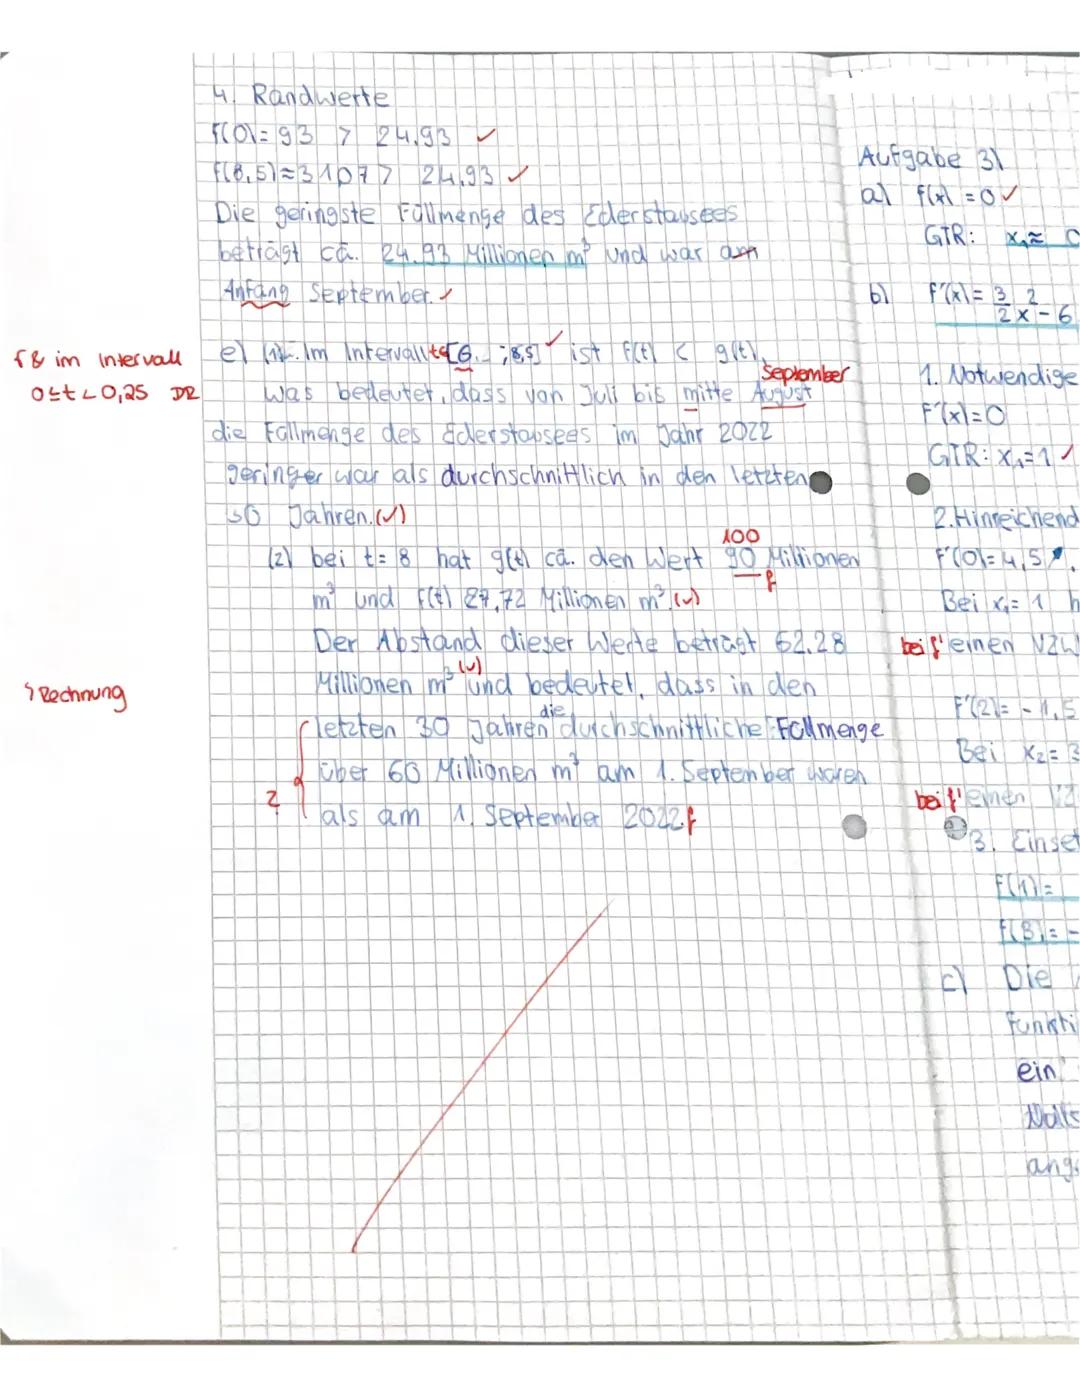 4. Randwerte
f(0) = 93 > 24,93 ✓
f(8,5) ≈ 31,077 > 24,93 ✓
Die geringste Füllmenge des Ederstausees
beträgt ca. 24.93 Millionen m³ und war am
Anfang September. ✓
f& im Intervall
0≤t<0,25 DR
e) (1) Im Intervall t∈[6 ; 8,5] ✓ ist f(t) < g(t),
September
was bedeutet, dass von Juli bis mitte August
die Füllmenge des Ederstausees im Jahr 2022
geringer war als durchschnittlich in den letzten
30 Jahren. (✓)
100
(2) bei t= 8 hat g(t) ca. den Wert 90 Millionen
f
m³ und f(t) 27,72 Millionen m³. (✓)
Der Abstand dieser Werte beträgt 62.28
(✓)
Millionen m³ und bedeutet, dass in den
Rechnung
die
letzten 30 Jahren durchschnittliche Füllmenge
über 60 Millionen m³ am 1. September waren
?
als am 1. September 2022. f
Aufgabe 3)
a) f(x) = 0 ✓
GTR: x₁≈ 0
b) f'(x) = 3/2 x² - 6
1. Notwendige
f'(x)=0
GTR: x₁=1 ✓
2. Hinreichend
f'(0)=4,5
Bei x₁= 1 h
bei f' einen VZW
f'(2)= -1,5
Bei x₂= 3
bei f' einen VZ
3. Einset
f(1)=
f(3)= -
c) Die
Funkti
ein